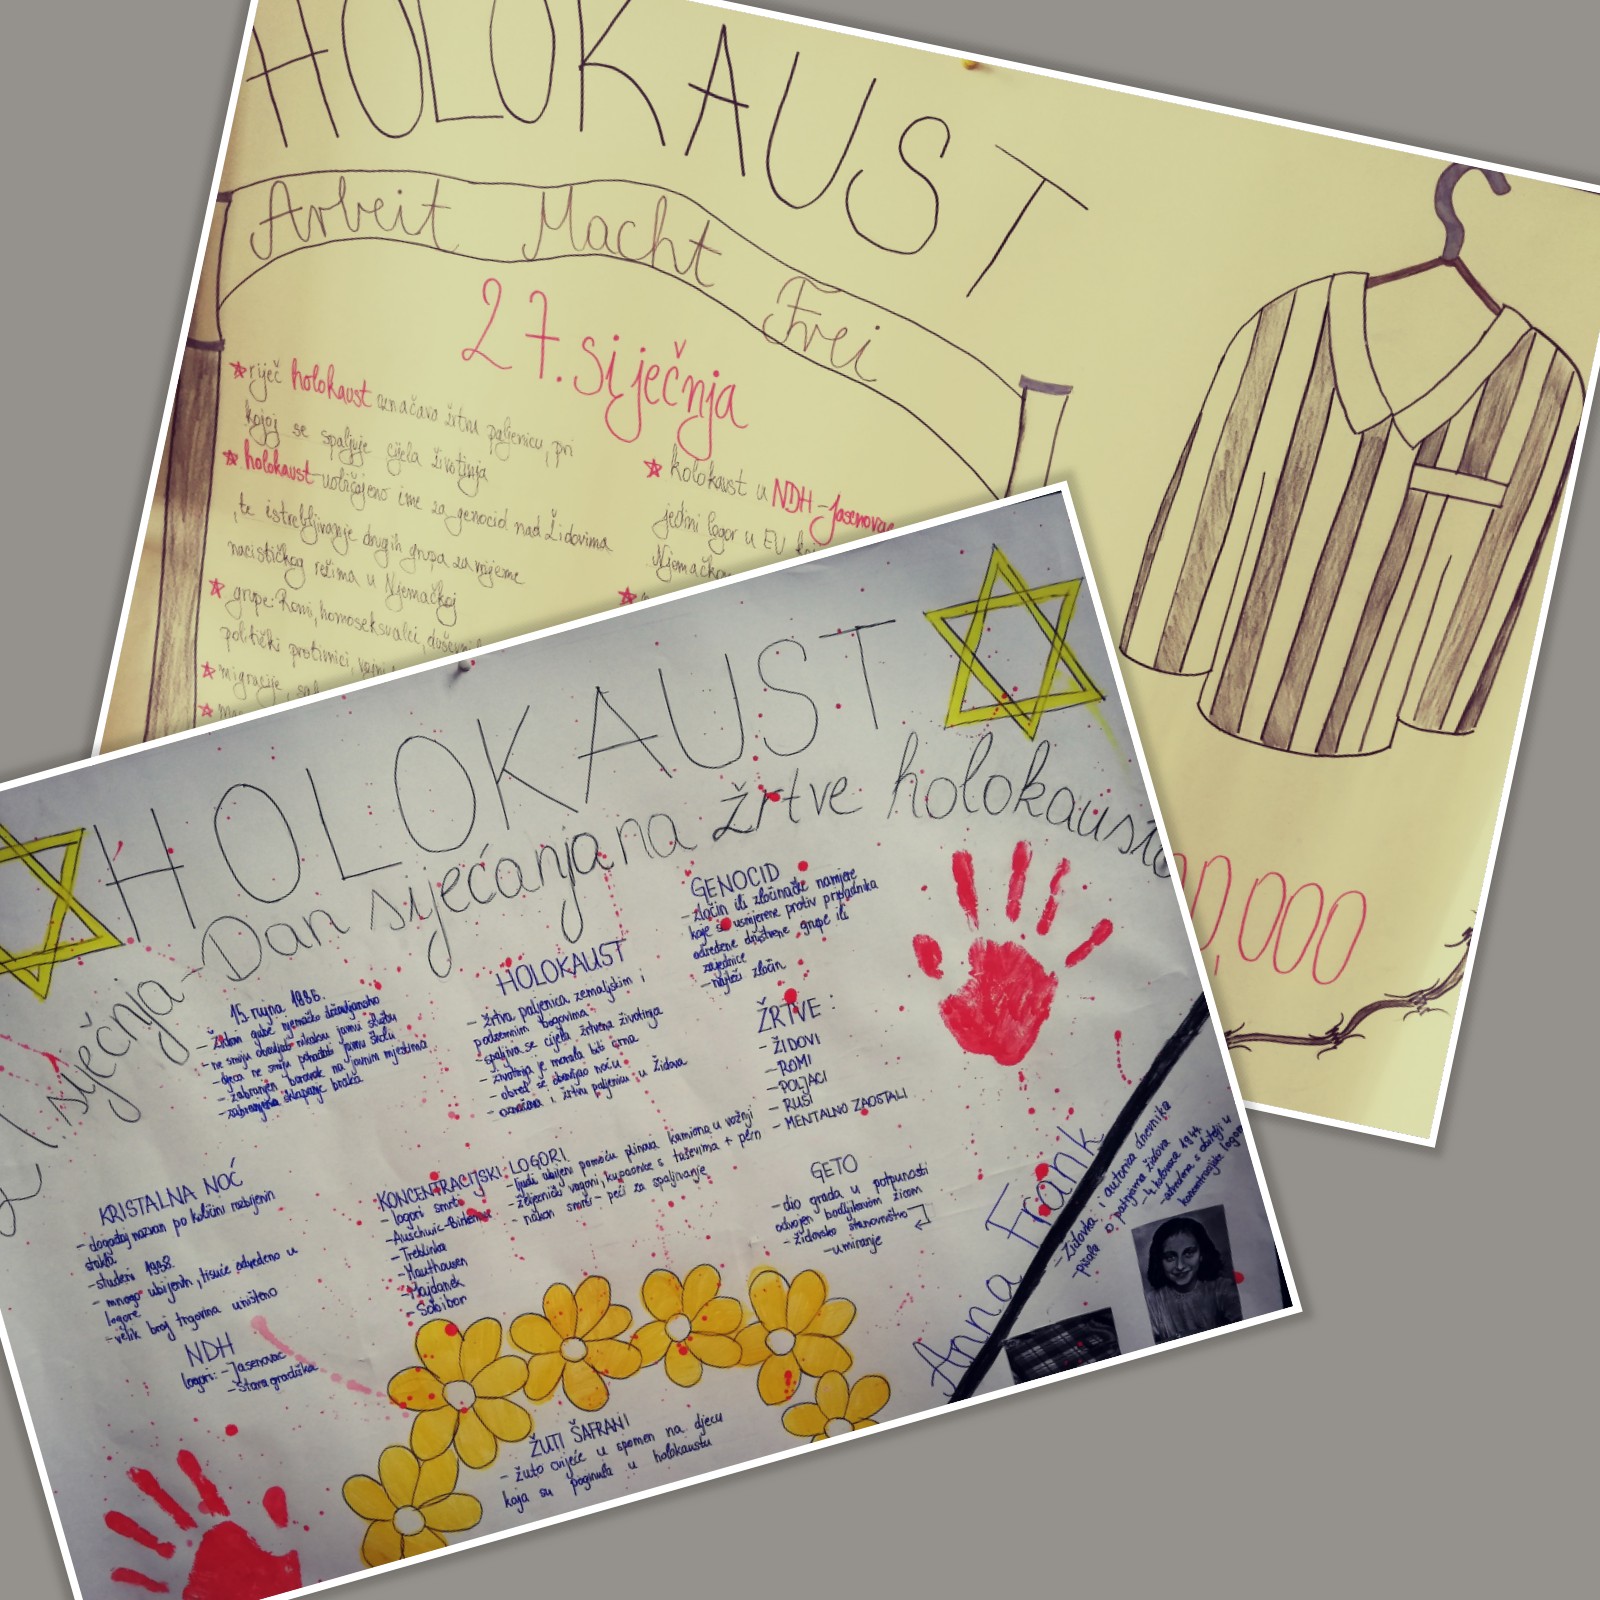 HOLOKAUST
Arbeit Macht Frei
27. siječnja
riječ holokaust označava žrtvu paljenicu, pri
kojoj se spaljuje cijela životinja
holokaust-uobičajeno ime za genocid nad Židovima
, te istrebljivanje drugih grupa za vrijeme
nacističkog režima u Njemačkoj
grupe: Romi, homoseksualci,
politički protivnici,
migracije,
holokaust u NDH-Jasenovac
jedini logor u EU
00,000
HOLOKAUST
siječnja-Dan sjećanja na žrtve holokausta
15. rujna 1886.
- Židovi gube njemačko državljanstvo
- ne smiju obavljati nikakvu javnu službu
- djeca ne smiju pohađati javnu školu
- zabranjen boravak na javnim mjestima
- zabranjeno sklapanje braka
HOLOKAUST
- žrtva paljenica zemaljskim i
podzemnim bogovima
- spaljiva se cijela žrtvena životinja
- životinja je morala biti crna
- obred se obavljao noću
- označava i žrtvu paljenicu u Židova
GENOCID
- zločin ili zločinačke namjere
koje su usmjerene protiv pripadnika
određene društvene grupe ili
zajednice
- najteži zločin
ŽRTVE:
- ŽIDOVI
- ROMI
- POLJACI
- RUSI
- MENTALNO ZAOSTALI
KRISTALNA NOĆ
- događaj nazvan po količini razbijenih
stakla
- studeni 1938.
- mnogo ubijenih, tisuće odvedeno u
logore
- velik broj trgovina uništeno
NDH
logori: - Jasenovac
- Stara gradiška
KONCENTRACIJSKI LOGORI
- logori smrti
- Auschwic-Birkenau
- Treblinka
- Mauthausen
- Majdanek
- Sobibor
- ljudi ubijeni pomoću plinova kamiona u vožnji
- željeznički vagoni, kupaonice s tuševima + pećn
- nakon smrti - peći za spaljivanje
GETO
- dio grada u potpunosti
odvojen bodljikavim žicom
- židovsko stanovništvo
- umiranje
ŽUTI ŠAFRANI
- žuto cvijeće u spomen na djecu
koja su poginula u holokaustu
Anna Frank
- Židovka i autorica dnevnika
o patnjama židova
- 4. kolovoza 1944.
- odvedena s obitelji u
koncentracijske logore